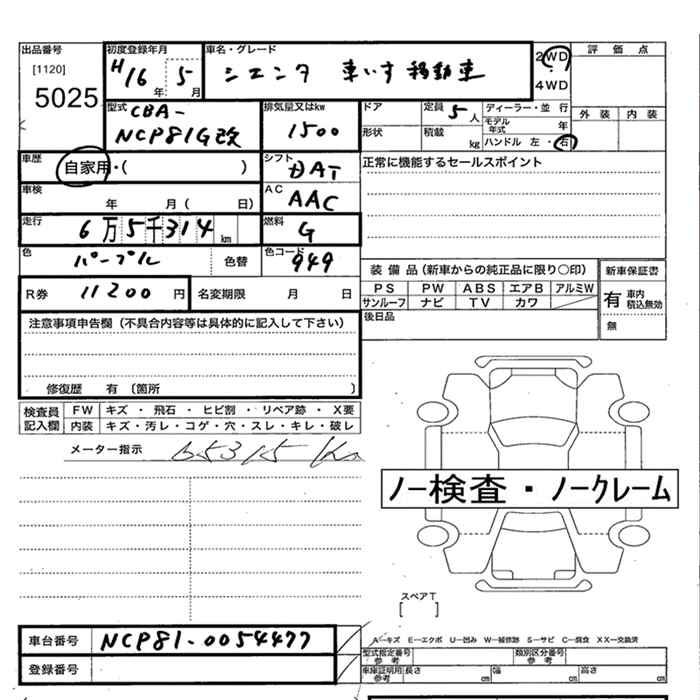 出品番号 初度登録年月 車名・グレード 2WD 評価点
[1120] H16年 5月 シエンタ 車いす移動車 4WD
5025
型式 CBA- 排気量又はkw ドア 定員 5人 ディーラー・並行 外装 内装
NCP81G改 1500 形状 積載 kg モデル年式 年
ハンドル 左・右
車歴 自家用・( ) シフト DAT 正常に機能するセールスポイント
車検 年 月( 日) AC AAC
走行 6万5千314km 燃料 G
色 パープル 色替 色コード 949
R券 11200円 名変期限 月 日
装備品(新車からの純正品に限り○印) 新車保証書
PS PW ABS エアB アルミW 有 車内積込無効
サンルーフ ナビ TV カワ 無
後日品
注意事項申告欄(不具合内容等は具体的に記入して下さい)
修復歴 有〔箇所 〕
検査員記入欄 FW キズ・飛石・ヒビ割・リペア跡・X要
内装 キズ・汚レ・コゲ・穴・スレ・キレ・破レ
メーター指示 65315 Km
ノー検査・ノークレーム
スペアT
[ ]
車台番号 NCP81-0054477
登録番号
A―キズ E―エクボ U―凹み W―補修跡 S―サビ C―腐食 XX―交換済
型式指定番号 参考 類別区分番号 参考
車庫証明用 参考 長さ cm 幅 cm 高さ cm